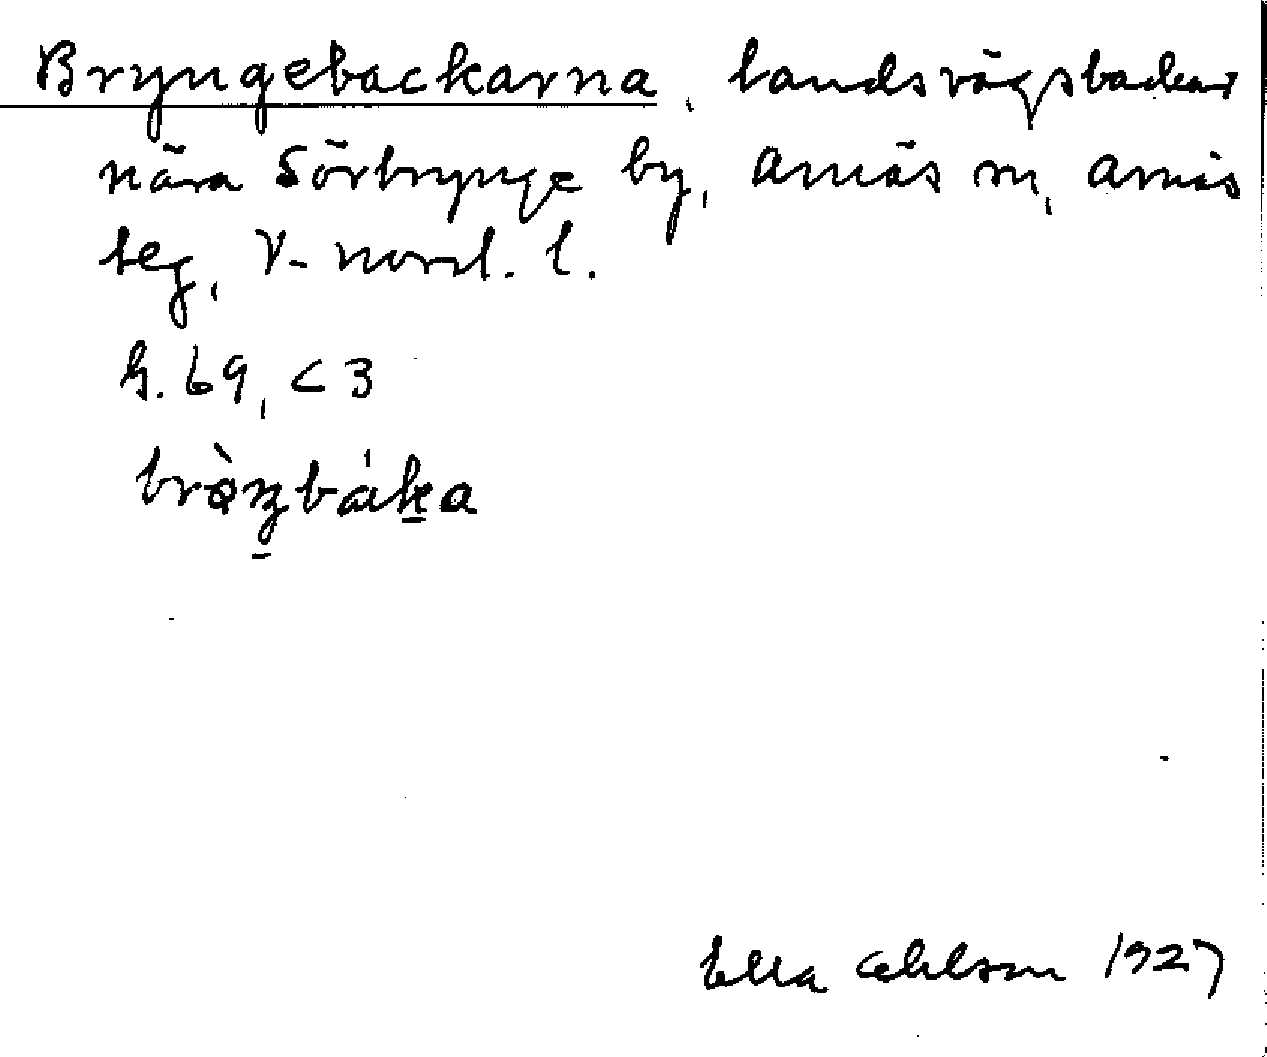 Bryngebackarna, landsvägsbackar
nära Sörbrynge by, Arnäs sn, Arnäs
teg, V-norrl. l.
G. 69, C 3
Ella Ohlson 1927